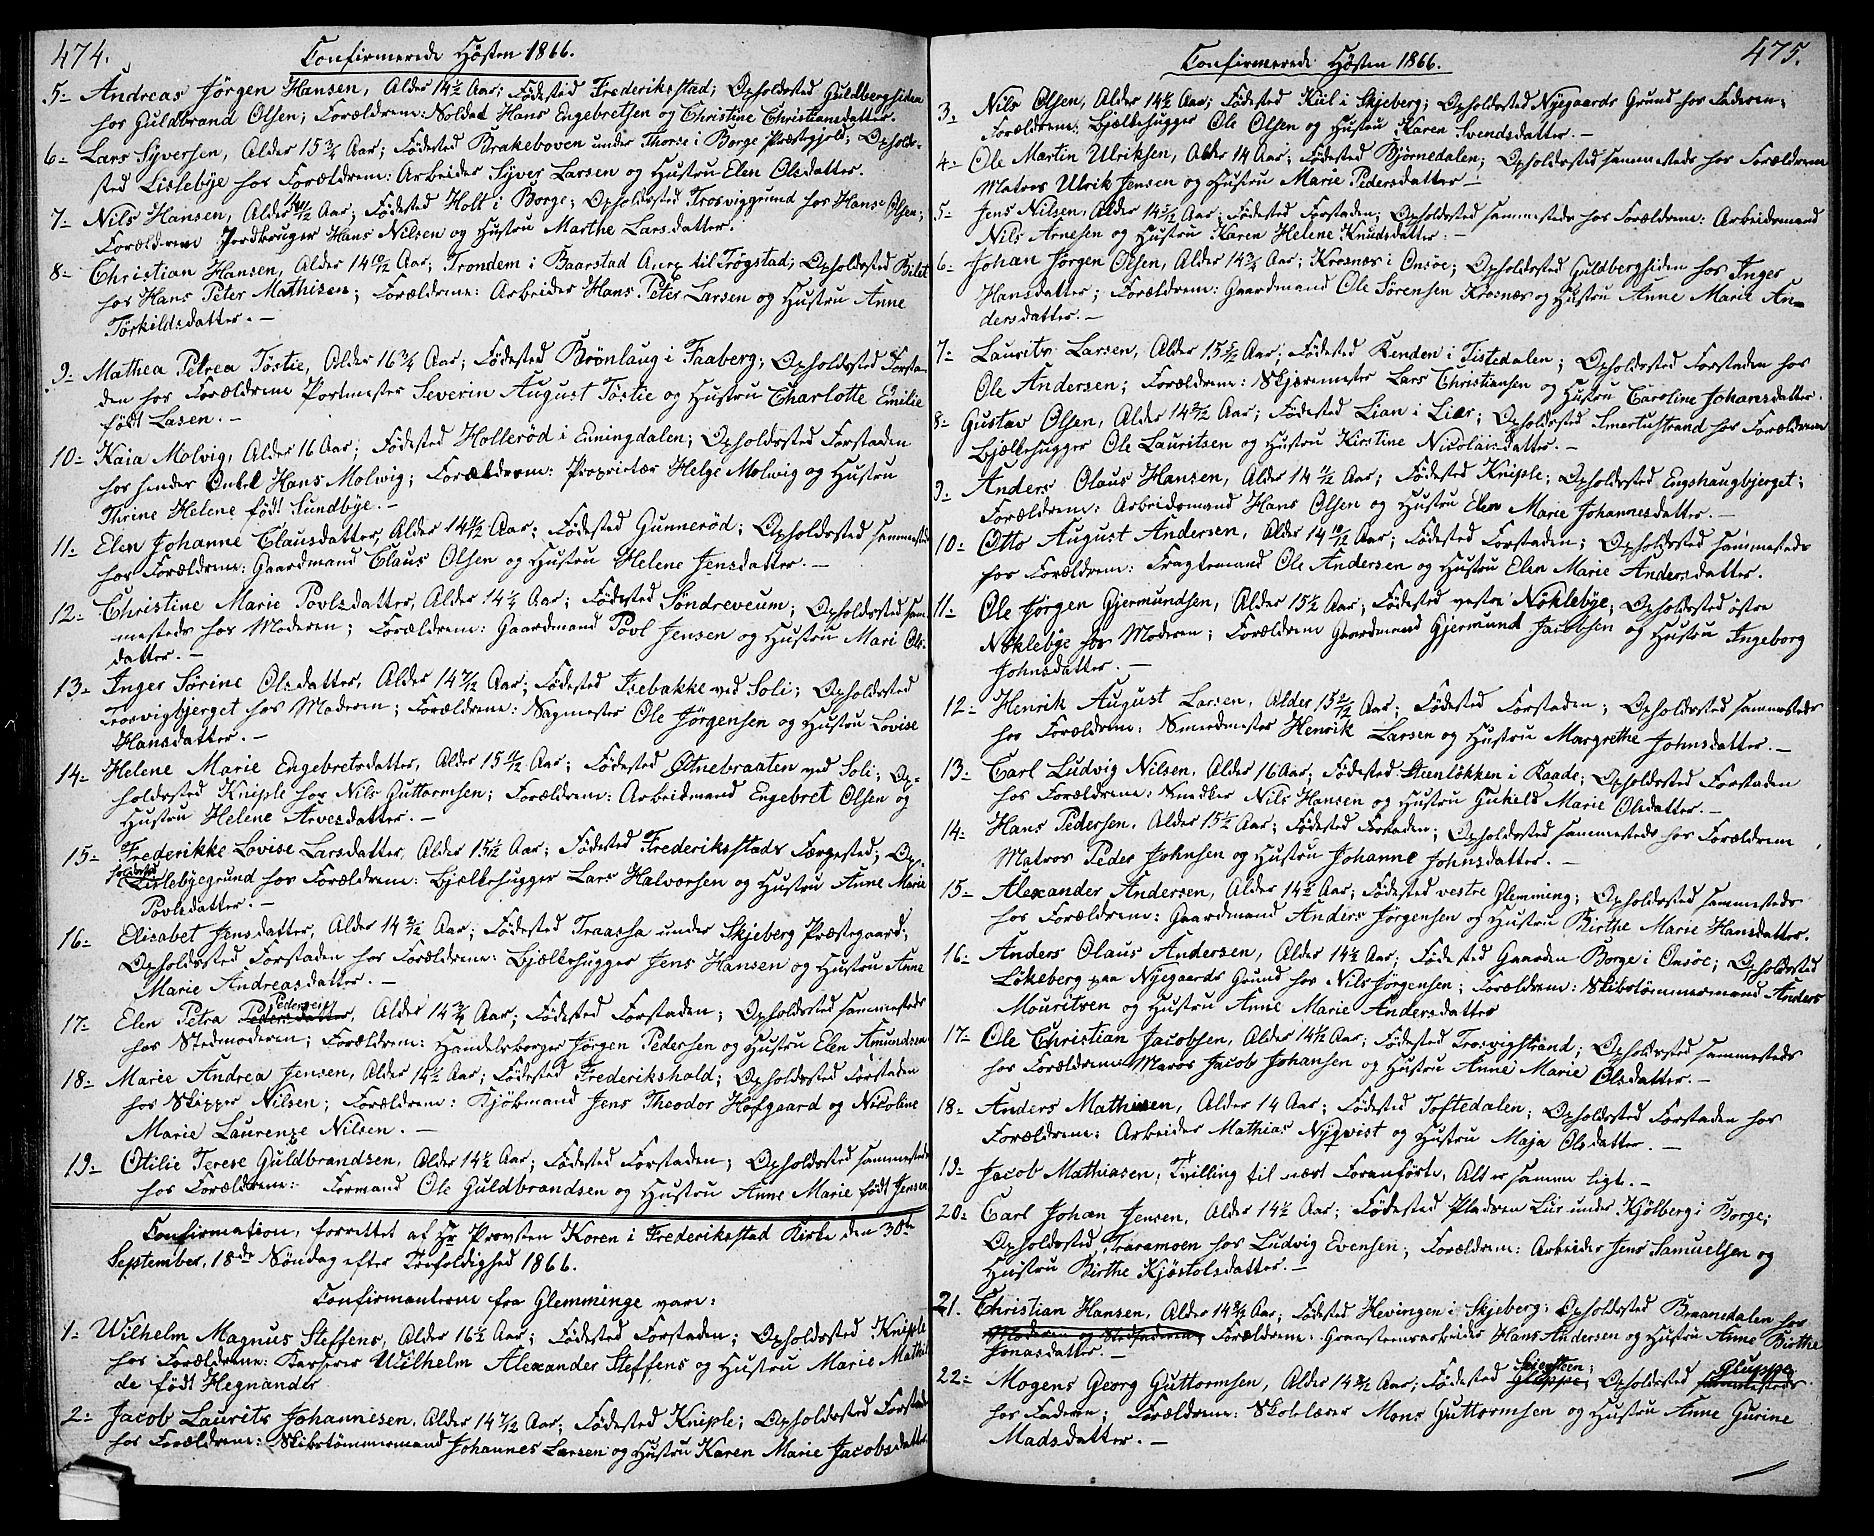 474.
Confirmerede Høsten 1866.
5- Andreas Jørgen Hansen, Alder 14½ Aar; Fødested Frederiksstad; Opholdssted Guldbergsiden
hos Guldbrand Olsen; Forældrene: Soldat Hans Engebretsen og Christine Christiansdatter.
6- Lars Syversen, Alder 15¾ Aar; Fødested Brakeboven under Thorsø i Borge Præstegjeld; Opholds-
sted Lislebye hos Forældrene: Arbeider Syver Larsen og Hustru Elen Olsdatter.
7- Nils Hansen, Alder 14 11/12 Aar; Fødested Holt i Borge; Opholdssted Trosviggrund hos Hans Olsen;
Forældrene Jordbruger Hans Nilsen og Hustru Marthe Larsdatter.
8- Christian Hansen, Alder 14 10/12 Aar; Trondem i Baarstad Anex til Trøgstad; Opholdssted Bilet
hos Hans Peter Mathisen; Forældrene: Arbeider Hans Peter Larsen og Hustru Anne
Tørkildsdatter. —
9- Mathea Petrea Tøstie, Alder 16¾ Aar; Fødested Brønlaug i Faaberg; Opholdssted Forsta-
den hos Forældrene Portmester Severin August Tøstie og Hustru Charlotte Emilie
født Lasen. —
10- Kaia Molvig, Alder 16 Aar; Fødested Hollerød i Enningdalen; Opholdssted Forstaden
hos hendes Onkel Hans Molwig; Forældrene: Proprietær Helge Molwig og Hustru
Thrine Helene født Sundbye. —
11- Elen Johanne Clausdatter, Alder 14½ Aar; Fødested Gunnerød; Opholdssted sammesteds
hos Forældrene: Gaardmand Claus Olsen og Hustru Helene Jensdatter. —
12- Christine Marie Povlsdatter, Alder 14¼ Aar; Fødested Søndreveum; Opholdssted sam-
mesteds hos Moderen; Forældrene: Gaardmand Povl Jensen og Hustru Mari Ols-
datter. —
13- Inger Sørine Olsdatter, Alder 14 7/12 Aar; Fødested Isebakke ved Soli; Opholdssted
Trosvigbjerget hos Moderen; Forældrene: Sagmester Ole Jørgensen og Hustru Lovise
Hansdatter. —
14- Helene Marie Engebretsdatter, Alder 15 11/12 Aar; Fødested Ætnebraaten ved Soli; Op-
holdssted Kniple hos Nils Guttormsen; Forældrene: Arbeidsmand Engebret Olsen og
Hustru Helene Arvesdatter. —
15- Frederikke Lovise Larsdatter, Alder 15½ Aar; Fødested Frederiksstads Færgested; Op-
holdssted Lislebyegrund hos Forældrene: Bjelkehugger Lars Halvorsen og Hustru Anne Marie
Povlsdatter. —
16- Elisabet Jensdatter, Alder 14 Aar; Fødested Traassa under Skjeberg Præstegaard;
Opholdssted Forstaden hos Forældrene: Bjelkehugger Jens Hansen og Hustru Anne
Marie Andreasdatter. —
17- Elen Petra Pedersen, Alder 14¾ Aar; Fødested Forstaden; Opholdssted sammesteds
hos Stedmoderen; Forældrene: Handelsborger Jørgen Pedersen og Hustru Elen Amundsen
18- Marie Andrea Jensen, Alder 14½ Aar; Fødested Frederikshald; Opholdssted Forstaden
hos Skipper Nilsen; Forældrene: Kjøbmand Jens Theodor Hofgaard og Nicoline
Marie Laurenze Nilsen. —
19- Otilie Terese Guldbrandsen, Alder 14½ Aar; Fødested Forstaden; Opholdssted sammesteds
hos Forældrene: Formand Ole Guldbrandsen og Hustru Anne Marie født Jensen
Confirmation, forrettet af Hr Provsten Koren i Frederiksstad Kirke den 30te
September, 18de Søndag efter Trefoldighed 1866.
Confirmanterne fra Glemminge vare:
1- Wilhelm Magnus Steffens, Alder 16½ Aar; Fødested Forstaden; Opholdssted Kniple
hos Forældrene: Kasserer Wilhelm Alexander Steffens og Hustru Marie Mathil-
de født Hegnander
2- Jacob Laurits Johannesen, Alder 14 7/12 Aar; Fødested Kniple; Opholdssted Forstad
hos Forældrene: Skibstømmermand Johannes Larsen og Hustru Karen Marie Jacobsdatter
475.
Confirmerede Høsten 1866.
3. Nils Olsen, Alder 14½ Aar; Fødested Kiil i Skjeberg; Opholdssted Nyegaards Grund hos Faderen;
Forældrene: Bjelkehugger Ole Olsen og Hustru Karen Svendsdatter. —
4- Ole Martin Ulriksen, Alder 14 Aar; Fødested Bjørnedalen; Opholdssted sammesteds hos Forældrene
Matros Ulrik Jensen og Hustru Marie Pedersdatter —
5- Jens Nilsen, Alder 14 5/12 Aar; Fødested Forstaden; Opholdssted sammesteds hos Forældrene: Arbeidsmand
Nils Arnesen og Hustru Karen Helene Knudsdatter. —
6- Johan Jørgen Olsen, Alder 14¾ Aar; Krosnes i Onsøe; Opholdssted Guldbergsiden hos Inger
Hansdatter; Forældrene: Gaardmand Ole Sørensen Krosnæs og Hustru Anne Marie An-
dersdatter. —
7- Laurits Larsen, Alder 15 5/12 Aar; Fødested Renden i Tistedalen; Opholdssted Forstaden hos
Ole Andersen; Forældrene: Skjæremester Lars Christiansen og Hustru Caroline Johansdatter.
8- Gustav Olsen, Alder 14 Aar; Fødested Lian i Lier; Opholdssted Smertustrand hos Forældrene
Bjelkehugger Ole Lauritsen og Hustru Kirstine Nicolaisdatter. —
9- Anders Olaus Hansen, Alder 14 11/12 Aar; Fødested Kniple; Opholdssted Engshaugbjerget;
Forældrene: Arbeidsmand Hans Olsen og Hustru Elen Marie Johannesdatter. —
10- Otto August Andersen, Alder 14 10/12 Aar; Fødested Forstaden; Opholdssted sammesteds
hos Forældrene: Fragtemand Ole Andersen og Hustru Elen Marie Andersdatter.
11- Ole Jørgen Gjermundsen, Alder 15½ Aar; Fødested vestre Nøklebye; Opholdssted østre
Nøklebye hos Moderen; Forældrene Gaardmand Gjermund Jacobsen og Hustru Ingeborg
Johnsdatter. —
12- Henrik August Larsen, Alder 15 Aar; Fødested Forstaden; Opholdssted sammesteds
hos Forældrene: Smedmester Henrik Larsen og Hustru Margrethe Johnsdatter. —
13- Carl Ludvig Nilsen, Alder 16 Aar; Fødested Steenløkken i Raade; Opholdssted Forstaden
hos Forældrene: Snedker Nils Hansen og Hustru Gunhild Marie Olsdatter. —
14- Hans Pedersen, Alder 15½ Aar; Fødested Forstaden; Opholdssted sammesteds hos Forældrene
Matros Peder Johnsen og Hustru Johanne Johnsdatter. —
15- Alexander Andersen, Alder 14½ Aar; Fødested vestre Glemming; Opholdssted sammesteds
hos Forældrene: Gaardmand Anders Jørgensen og Hustru Birthe Marie Hansdatter.
16- Anders Olaus Andersen, Alder 14½ Aar; Fødested Gaarden Borge i Onsøe; Opholdssted
Løkeberg paa Nyegaards Grund hos Nils Jørgensen; Forældrene: Skibstømmermand Anders
Mouritsen og Hustru Anne Marie Andersdatter
17- Ole Christian Jacobsen, Alder 14½ Aar; Fødested Trosvigstrand; Opholdssted sammesteds
hos Forældrene Maros Jacob Johansen og Hustru Anne Marie Olsdatter. —
18- Anders Mathisen, Alder 14 Aar; Fødested Toftedalen; Opholdssted Forstaden hos
Forældrene: Arbeider Mathias Nyqvist og Hustru Maja Olsdatter. —
19- Jacob Mathiasen, Tvilling til næst Foranførte, Alt er samme ligt. —
20- Carl Johan Jensen, Alder 14½ Aar; Fødested Pladsen Lur under Kjølberg i Borge;
Opholdssted Traramoen hos Ludvig Evensen; Forældrene: Arbeider Jens Samuelsen og
Hustru Birthe Kjøstolsdatter. —
21. Christian Hansen, Alder 14 Aar; Fødested Hevingen i Skjeberg; Opholdssted Braanedalen hos
Moderen og Stedfaderen, Forældrene: Granstensarbeider Hans Andersen og Hustru Anne Birthe
Jonasdatter. —
22- Mogens Georg Guttormsen, Alder 14 Aar; Fødested Seiersteen; Opholdssted Gluppe
hos Faderen; Forældrene: Skolelærer Mons Guttormsen og Hustru Anne Gurine
Madsdatter. —